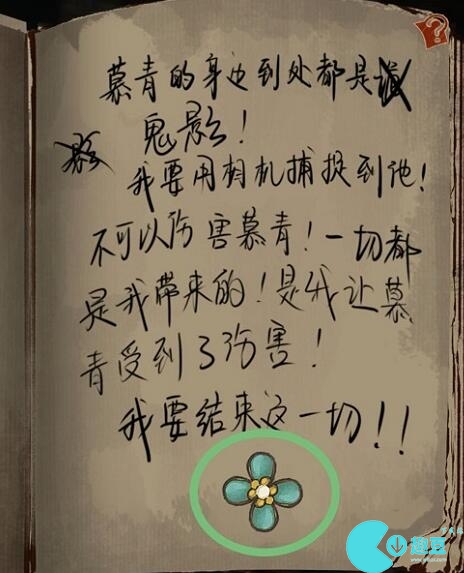 慕青的身边到处都是
鬼影！
我要用相机捕捉到他！
不可以伤害慕青！一切都
是我带来的！是我让慕
青受到了伤害！
我要结束这一切！！
趣丁